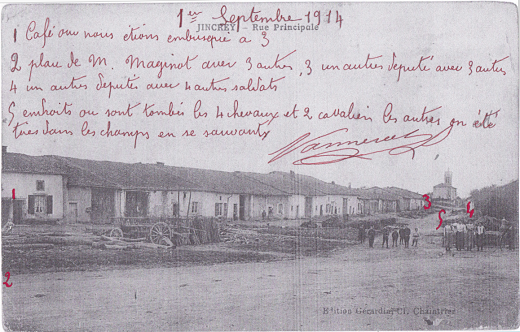 1er Septembre 1914
JINCREY – Rue Principale
1 Café ou nous etions embusqué a 3
2 place de M. Maginot avec 3 autres, 3 un autres deputé avec 3 autres
4 un autres deputés avec 4 autres soldats
5 endroits ou sont tombés les 4 chevaux et 2 cavaliers les autres on été
tués dans les champs en se sauvants
Vannerot
1
2
3
5
4
Edition Gérardin, Cl. Chantriez